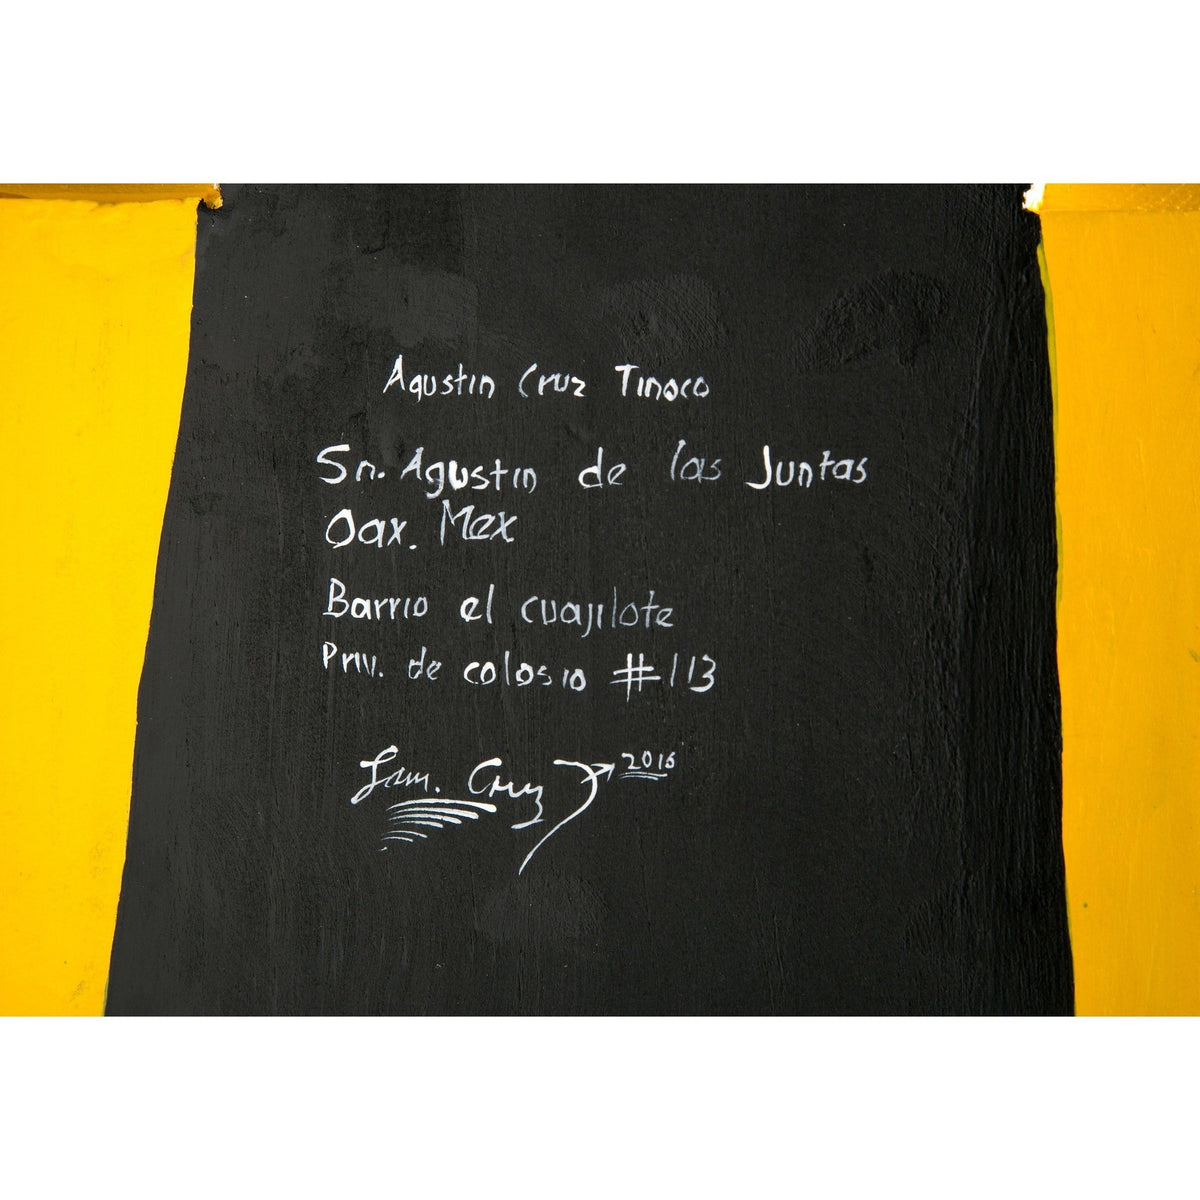 Agustin Cruz Tinoco
Sn. Agustin de las Juntas
Oax. Mex
Barrio el cuajilote
Priv. de colosio #113
Fam. Cruz 2016